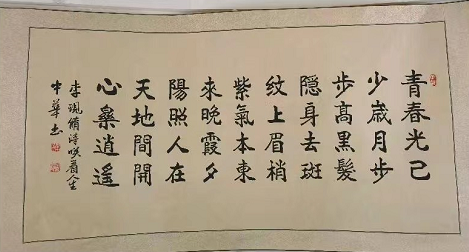 青春光已
少歳月步
步高黑髮
隱身去斑
紋上眉梢
紫氣本東
來晚霞夕
陽照人在
天地間開
心樂逍遙
李詩看人生
中華書